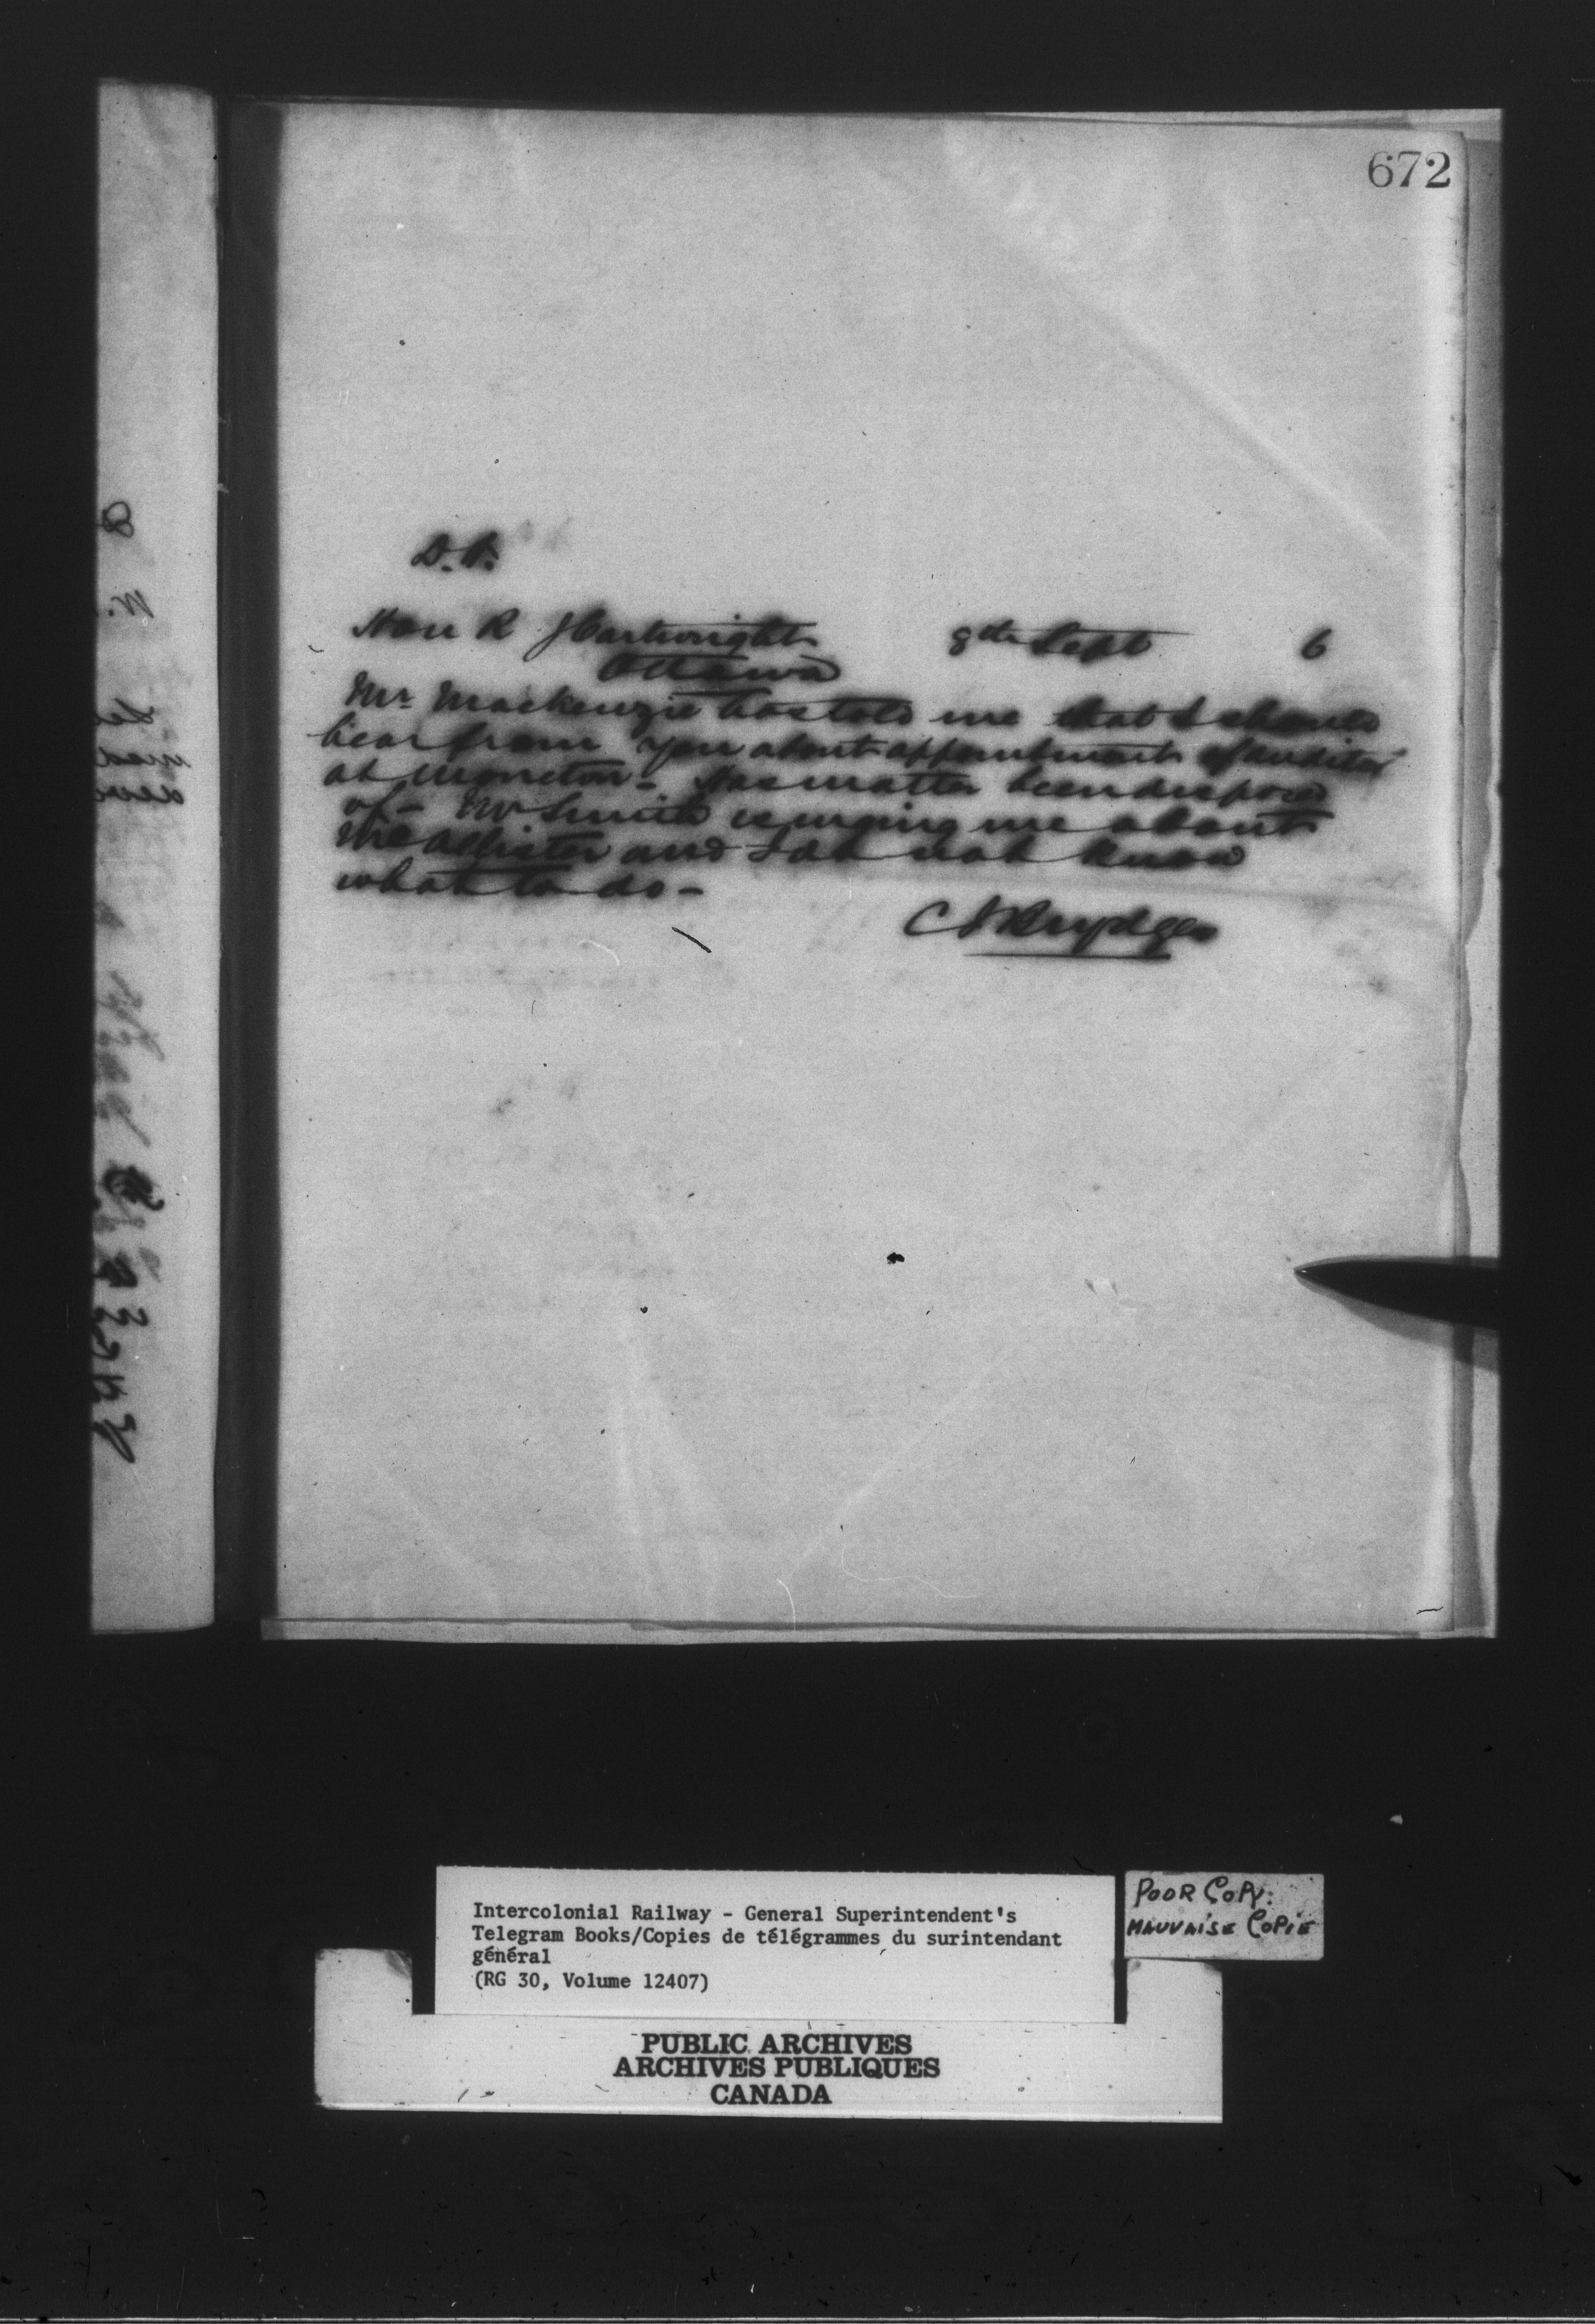 672
D.R.
Hon R J Cartwright 8th Sept 6
Ottawa
Mr Mackenzie has told me that I should
hear from you about appointment of auditor
at Moncton - Has matter been disposed
of - Mr Smith is urging me about
McAllister and I do not know
what to do -
C J Brydges
Intercolonial Railway - General Superintendent's
Telegram Books/Copies de télégrammes du surintendant
général
(RG 30, Volume 12407)
POOR COPY.
MAUVAISE COPIE
PUBLIC ARCHIVES
ARCHIVES PUBLIQUES
CANADA